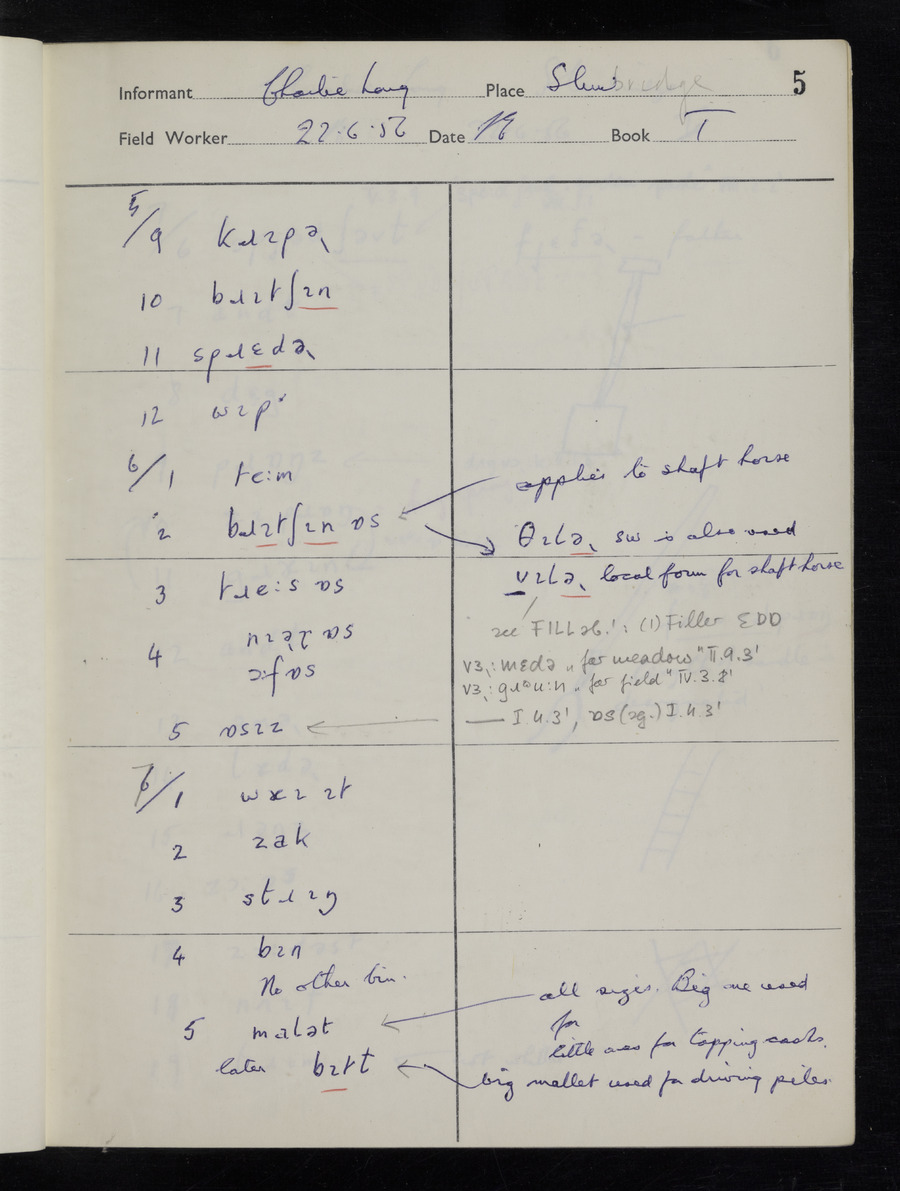 Informant Charlie Long Place Slimbridge 5
Field Worker 22.6.56 Date Book I
5/9 kɹɪpə˞
10 bɹɪtʃɪn
11 spɹɛdə˞
12 wɪp
6/1 te:m
applies to shaft horse
2 bɹɪtʃɪn ɒs
θɪlə˞ sw is also used
3 tɹe:s ɒs
vɪlə˞ local form for shaft horse
see FILLəb.': (1) Filler EDD
4 ɒs
vɜ˞: mɛdə „ for meadow" II.9.3'
fɔ: ɒs
vɜ˞: gɹəu:n „ for field" IV.3.8'
5 ɒsɪz
— I.4.3', ɒs (sg.) I.4.3'
7/1
2 zak
3 stɹɪŋ
4 bɪn
No other bin.
all sizes. Big one used
5 malət
for
little ones for tapping casks.
later bɪtt
big mallet used for driving piles